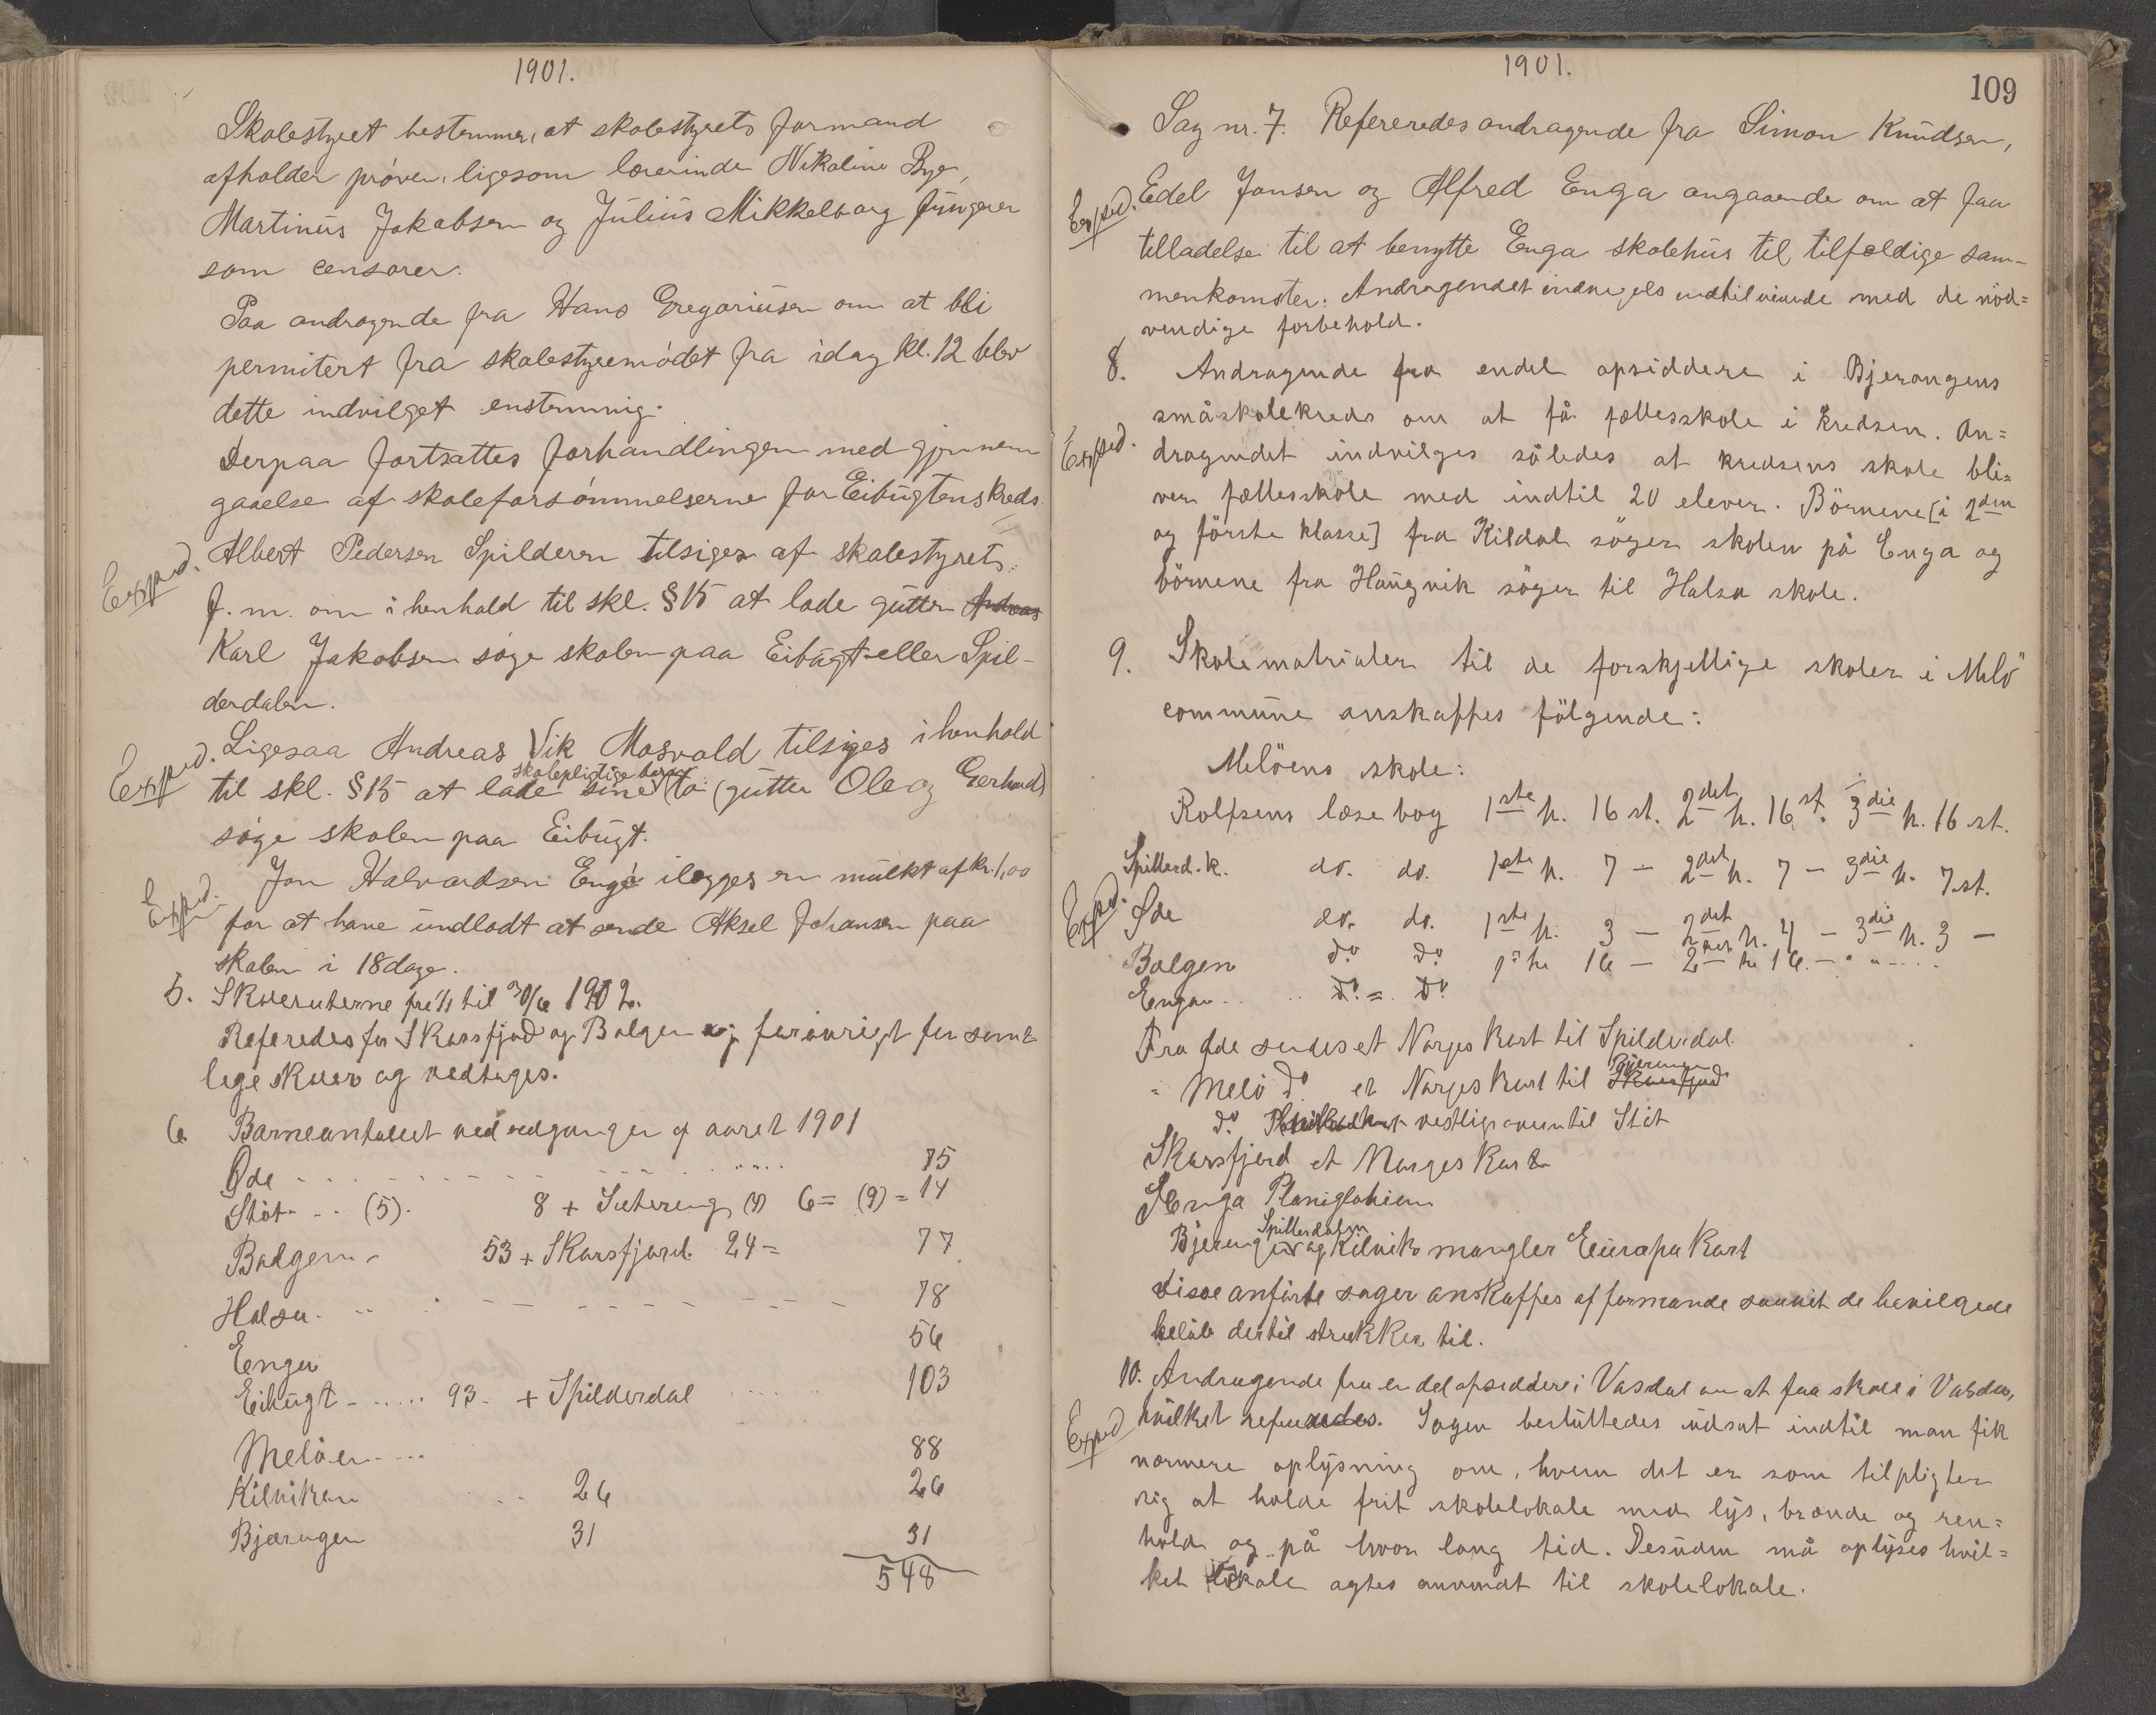 1901.
Skolestyret bestemmer, at skolestyrets formand
afholder prøven, ligesom lærerinde Nikoline Bye,
Martinus Jakobsen og Julius Mikkelborg fungerer
som censorer.
Paa andragende fra Hans Gregoriusen om at bli
permitert fra skolestyremødet fra idag kl. 12 blev
dette indvilget enstemmig.
Derpaa fortsattes forhandlingen med gjennem
gaaelse af skoleforsømmelserne for Eibugtens kreds.
Exped. Albert Pedersen Spilderen tilsiges af skolestyrets
f. m. om i henhold til skl. § 15 at lade gutten Andreas
Karl Jakobsen søge skolen paa Eibugt eller Spil-
derdalen.
Exped. Ligesaa Andreas Vik Mosvold tilsiges i henhold
skolepligtige børn
til skl. § 15 at lade sine to (gutter Ole og Gerhard)
søge skolen paa Eibugt.
Exped. Jon Halvardsen Engå ilægges en mulkt af kr. 1,00
for at have undladt at sende Aksel Johansen paa
skolen i 18 dage.
5. Skoleruterne fra 1/1 til 30/6 1902.
Referedes for Skarsfjord og Bolgen og forøvrigt for samt=
lege skoler og vedtages.
6. Barneantallet ved udgangen af aaret 1901
Øde 75
Støt (5). 8 + Sætereng (4) 6 = (9) = 14
Bolgen 53 + Skarsfjord. 24 = 77
Halsa 78
Enga 56
Eibugt 93 + Spilderdal 103
Meløen 88
Kilviken 26 26
Bjærangen 31 31
548
1901.
109
Sag nr. 7. Refereredes andragende fra Simon Knudsen,
Exped. Edel Jonsen og Alfred Enga angaaende om at faa
tilladelse til at benytte Enga skolehus til tilfældige sam-
menkomster. Andragendet indvilges indtil videre med de nöd=
vendige forbehold.
8. Andragende fra endel opsiddere i Bjerangens
småskolekreds om at få fællesskole i kredsen. An=
Exped. dragendet indvilges således at kredsens skole bli=
ver fællesskole med indtil 20 elever. Börnene [i 2den
og förste klasse] fra Kildal söger skolen på Enga og
börnene fra Haugvik söger til Halsa skole.
9. Skolematrialer til de forskjellige skoler i Melö
commune anskaffes fölgende:
Melöens skole:
Rolfsens læsebog 1ste h. 16 st. 2det h. 16 st. 3die h. 16 st.
Spilderd. k. do. do. 1ste h. 7 — 2det h. 7 — 3die h. 7 st.
Exped. Øde do. do. 1ste h. 3 — 2det h. 4 — 3die h. 3 —
Bolgen do do 1ste h 16 — 2den h 16 —
Enga do = do
Fra Øde sendes et Norges Kart til Spilderdal
" Melö do et Norges Kart til Skarsfjord Bjerangen
do vestlig til Støt
Skarsfjord et Norges Kart
Enga Planiglobien
Spilderdalen
Bjerangen og Kilvik mangler Europa Kart
disse anførte sager anskaffes af formanden saavit de bevilgede
beløb dertil strækker til.
10. Andragende fra en del opsiddere i Vasdal om at faa skole i Vasdal,
Exped hvilket refereredes. Sagen besluttedes udsat indtil man fik
nærmere oplysning om, hvem det er som tilpligter
sig at holde frit skolelokale med lys, brænde og ren=
hold og på hvor lang tid. Desuden må oplyses hvil=
ket lokale agtes anvendt til skolelokale.